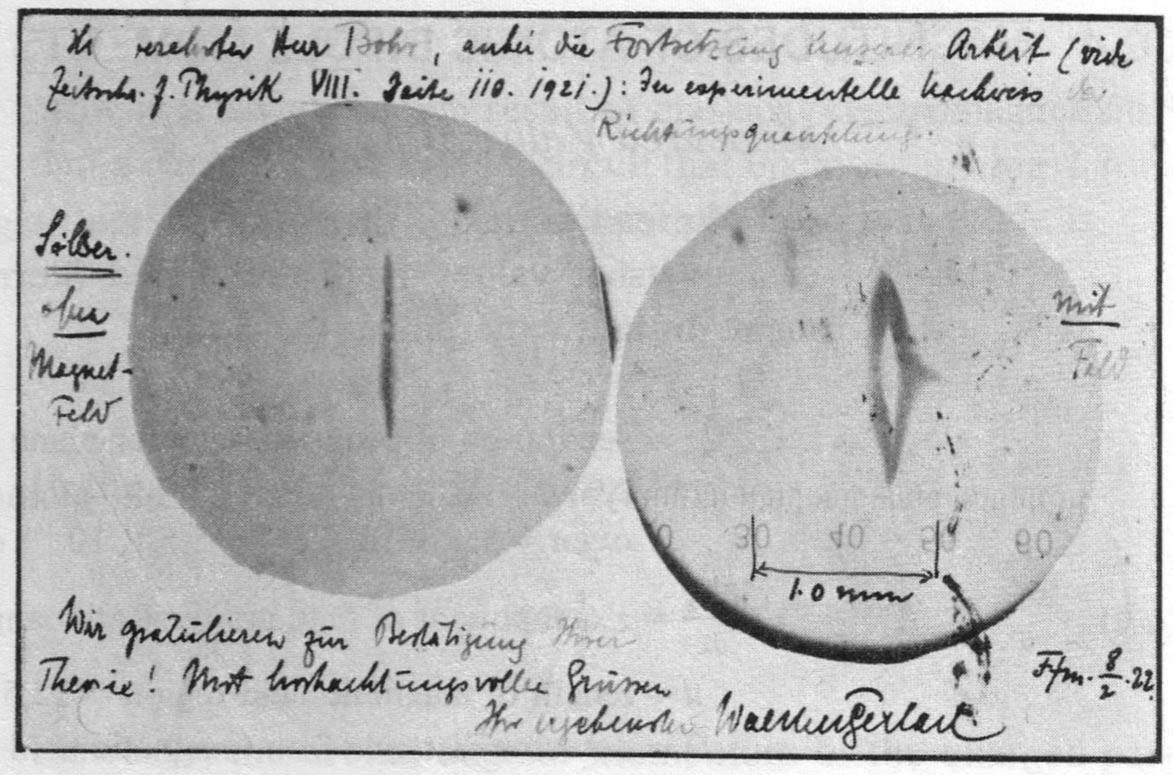 verehrter Herr Bohr, anbei die Fortsetzung unserer Arbeit (vide
Zeitschr. f. Physik VIII. Seite 110. 1921.): Der experimentelle Nachweis der
Richtungsquantelung.
Silber.
ohne
Magnet-
Feld
mit
Feld
0 30 40 50 60
1.0 mm
Wir gratulieren zur Bestätigung Ihrer
Theorie! Mit hochachtungsvollen Grüssen
Ihr ergebenster Walther Gerlach
Ffm. 8/2.22